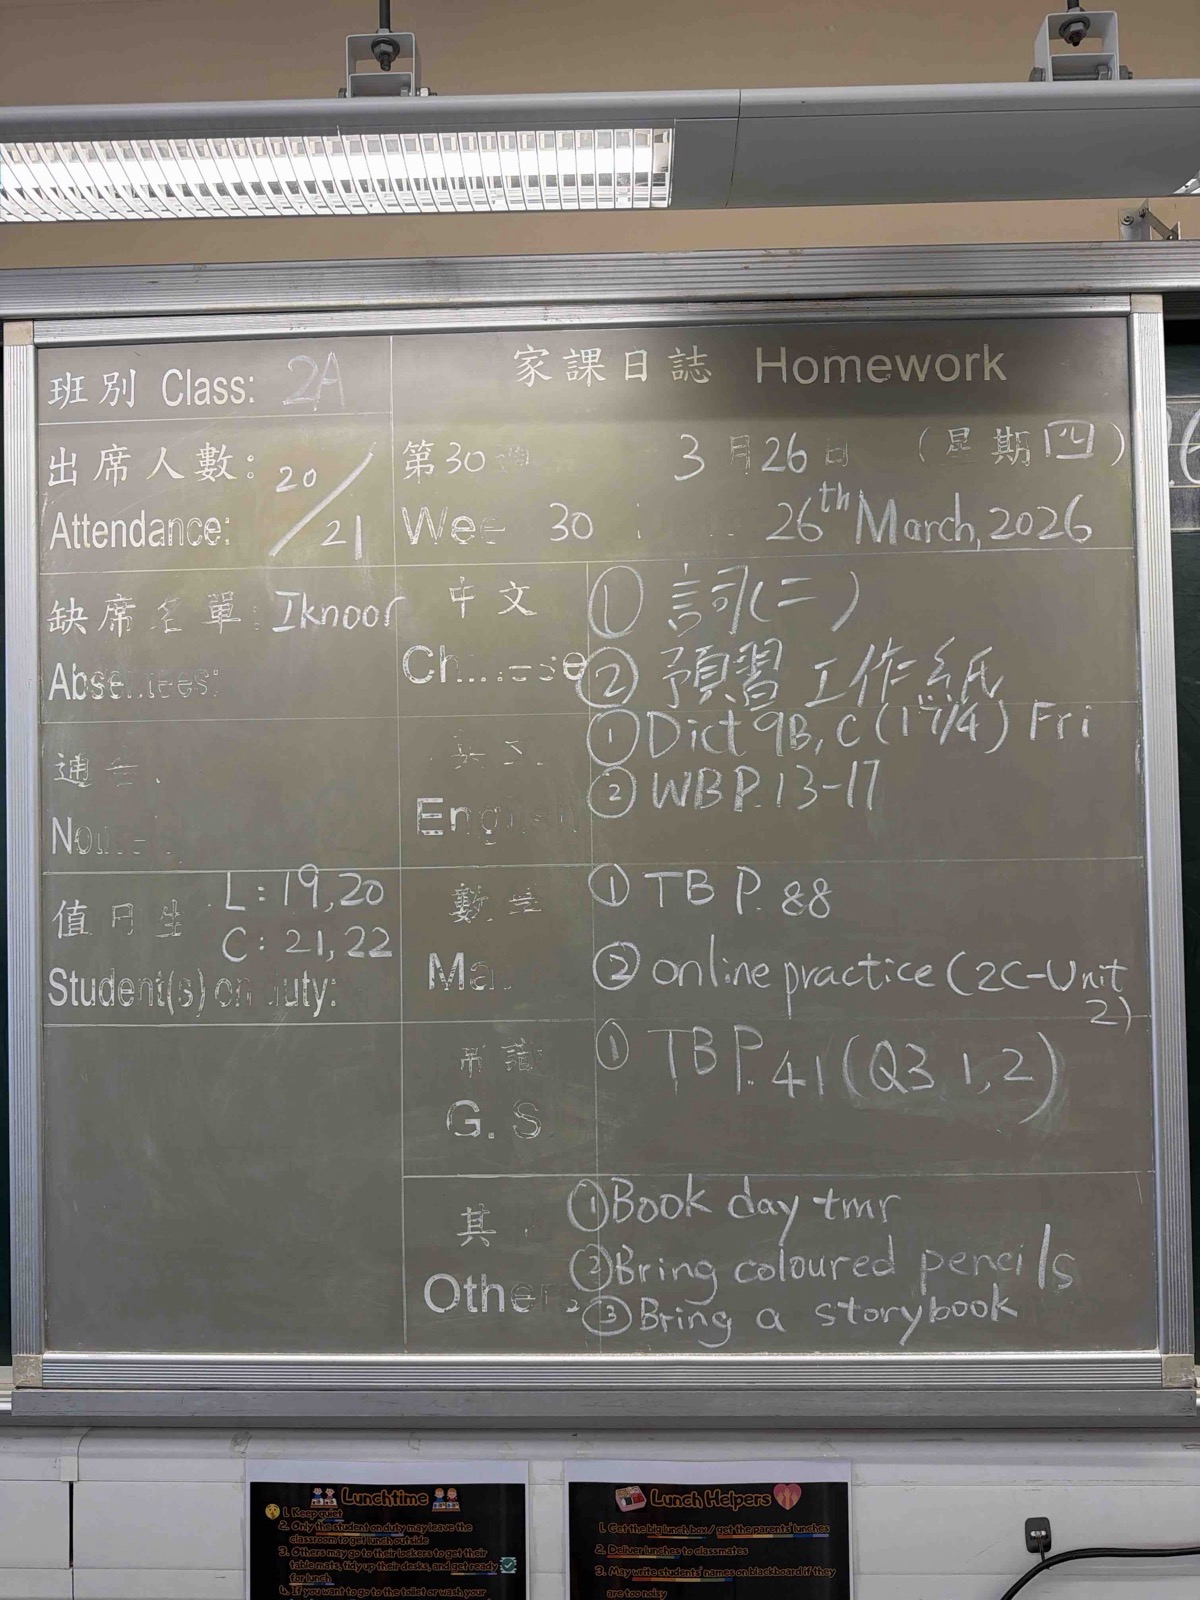 班別 Class: 2A
家課日誌 Homework
出席人數: 20/21
Attendance:
第30週 3月26日 (星期四)
Wee 30 26th March, 2026
缺席名單: Iknoor
Absentees:
中文 Chinese
① 詞(二)
② 預習工作紙
English
① Dict 9B, C (17/4) Fri
② WB P. 13-17
值日生 L: 19, 20
C: 21, 22
Student(s) on duty:
數學
Ma
① TB P. 88
② online practice (2C-Unit
2)
常識
G. S
① TB P. 41 (Q3 1, 2)
其
Others
① Book day tmr
② Bring coloured pencils
③ Bring a storybook
Lunchtime
1. Keep quiet
2. Only the student on duty may leave the
classroom to get lunch outside
3. Others may go to their lockers to get their
table mats, tidy up their desks, and get ready
for lunch
4. If you want to go to the toilet or wash your
Lunch Helpers
1. Get the big lunch box / get the parents' lunches
2. Deliver lunches to classmates
3. May write students' names on blackboard if they
are too noisy